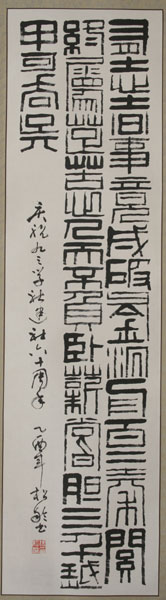 有志者事竟成破釜沉舟百二秦關
終屬楚苦心人天不負臥薪嘗膽三千越
甲可吞吳
庆祝九三学社建社六十周年 乙酉年 松龄书